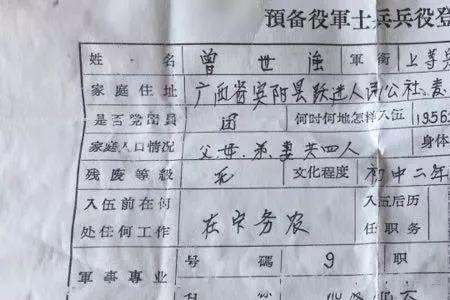 預备役軍士兵兵役登
姓名 曾世强 軍銜 上等兵
家庭住址 广西省宾阳县跃进人民公社
是否党团員 团 何时何地怎样入伍 1956
家庭人口情況 父.母.弟.妻共四人 身体
残废等級 无 文化程度 初中二年
入伍前在何处任何工作 在家务农 入伍后历任职务
軍事專业 号碼 9 职